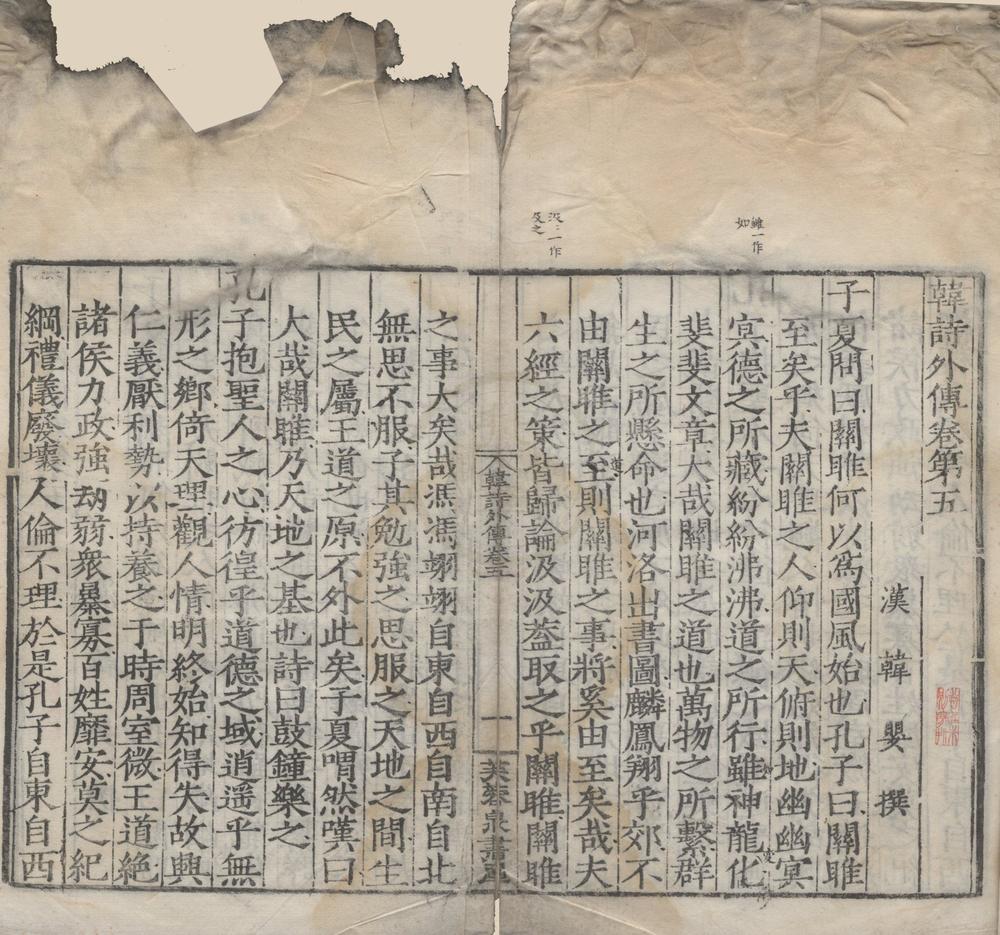 韓詩外傳卷第五
漢韓嬰撰
子夏問曰關雎何以爲國風始也孔子曰關雎
至矣乎夫關雎之人仰則天俯則地幽幽冥
冥德之所藏紛紛沸沸道之所行雖神龍化
斐斐文章大哉關雎之道也萬物之所繫群
生之所懸命也河洛出書圖麟鳳翔乎郊不
由關雎之至則關雎之事將奚由至矣哉夫
六經之策皆歸論汲汲蓋取之乎關雎關雎
韓詩外傳卷五
一
芙蓉泉書屋
之事大矣哉馮馮翊翊自東自西自南自北
無思不服子其勉強之思服之天地之間生
民之屬王道之原不外此矣子夏喟然嘆曰
大哉關雎乃天地之基也詩曰鼓鐘樂之
孔子抱聖人之心彷徨乎道德之域逍遥乎無
形之鄉倚天理觀人情明終始知得失故興
仁義厭利勢以持養之于時周室微王道絶
諸侯力政強劫弱衆暴寡百姓靡安莫之紀
綱禮儀廢壞人倫不理於是孔子自東自西
雖一作
如
汲汲一作
及之
道